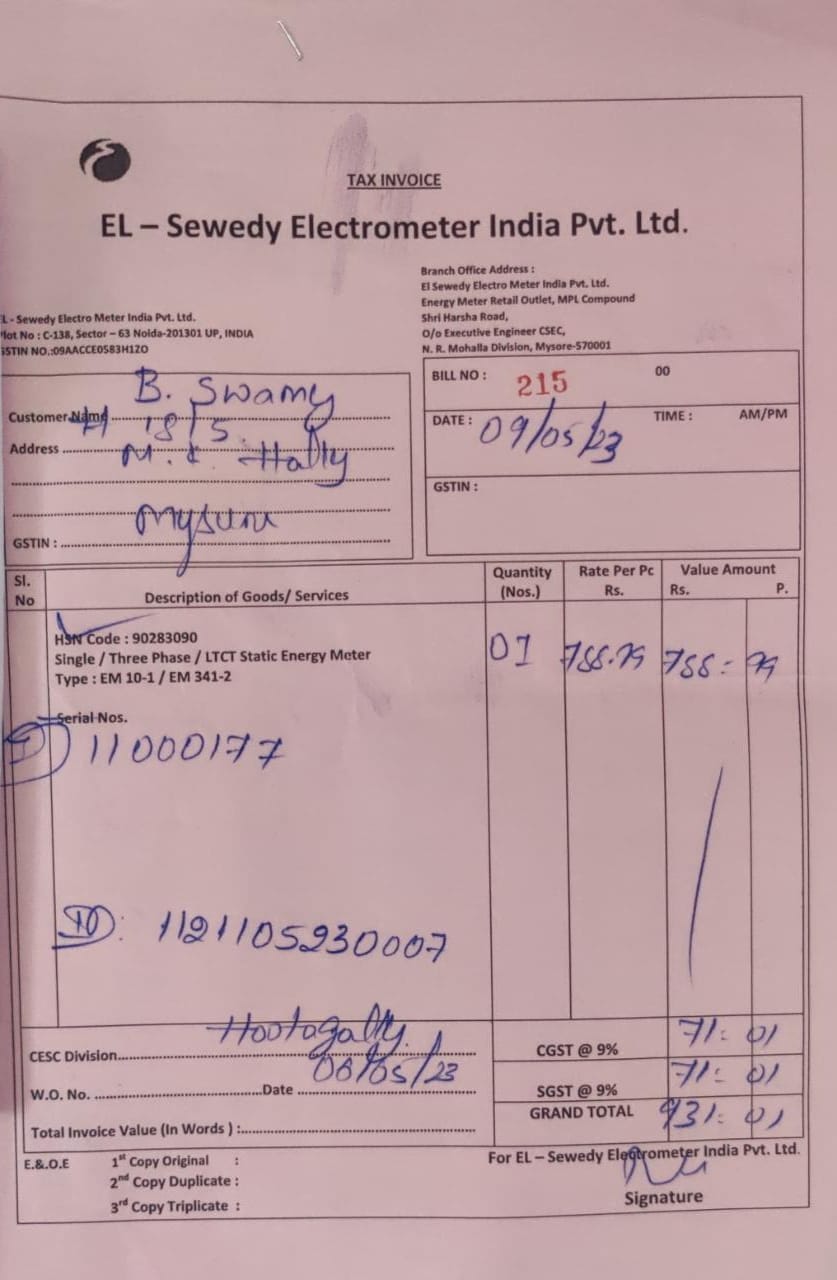 TAX INVOICE
EL – Sewedy Electrometer India Pvt. Ltd.
Branch Office Address :
El Sewedy Electro Meter India Pvt. Ltd.
Energy Meter Retail Outlet, MPL Compound
Shri Harsha Road,
O/o Executive Engineer CSEC,
N. R. Mohalla Division, Mysore-570001
L - Sewedy Electro Meter India Pvt. Ltd.
lot No : C-138, Sector – 63 Noida-201301 UP, INDIA
GSTIN NO.:09AACCE0583H1Z0
BILL NO : 215 00
DATE : 09/05/23 TIME : AM/PM
GSTIN :
B. Swamy
Customer Name # 18/5.
Address M.K. Hally
Mysuru
GSTIN :
Sl. No Description of Goods/ Services Quantity (Nos.) Rate Per Pc Rs. Value Amount Rs. P.
HSN Code : 90283090
Single / Three Phase / LTCT Static Energy Meter 01 788.99 788=99
Type : EM 10-1 / EM 341-2
Serial Nos.
11000177
ID: 1121105230007
Hootagally
CESC Division CGST @ 9% 71=01
08/05/23
W.O. No. Date SGST @ 9% 71=01
GRAND TOTAL 931=01
Total Invoice Value (In Words ) :
E.&.O.E 1st Copy Original : For EL – Sewedy Electrometer India Pvt. Ltd.
2nd Copy Duplicate :
3rd Copy Triplicate : Signature